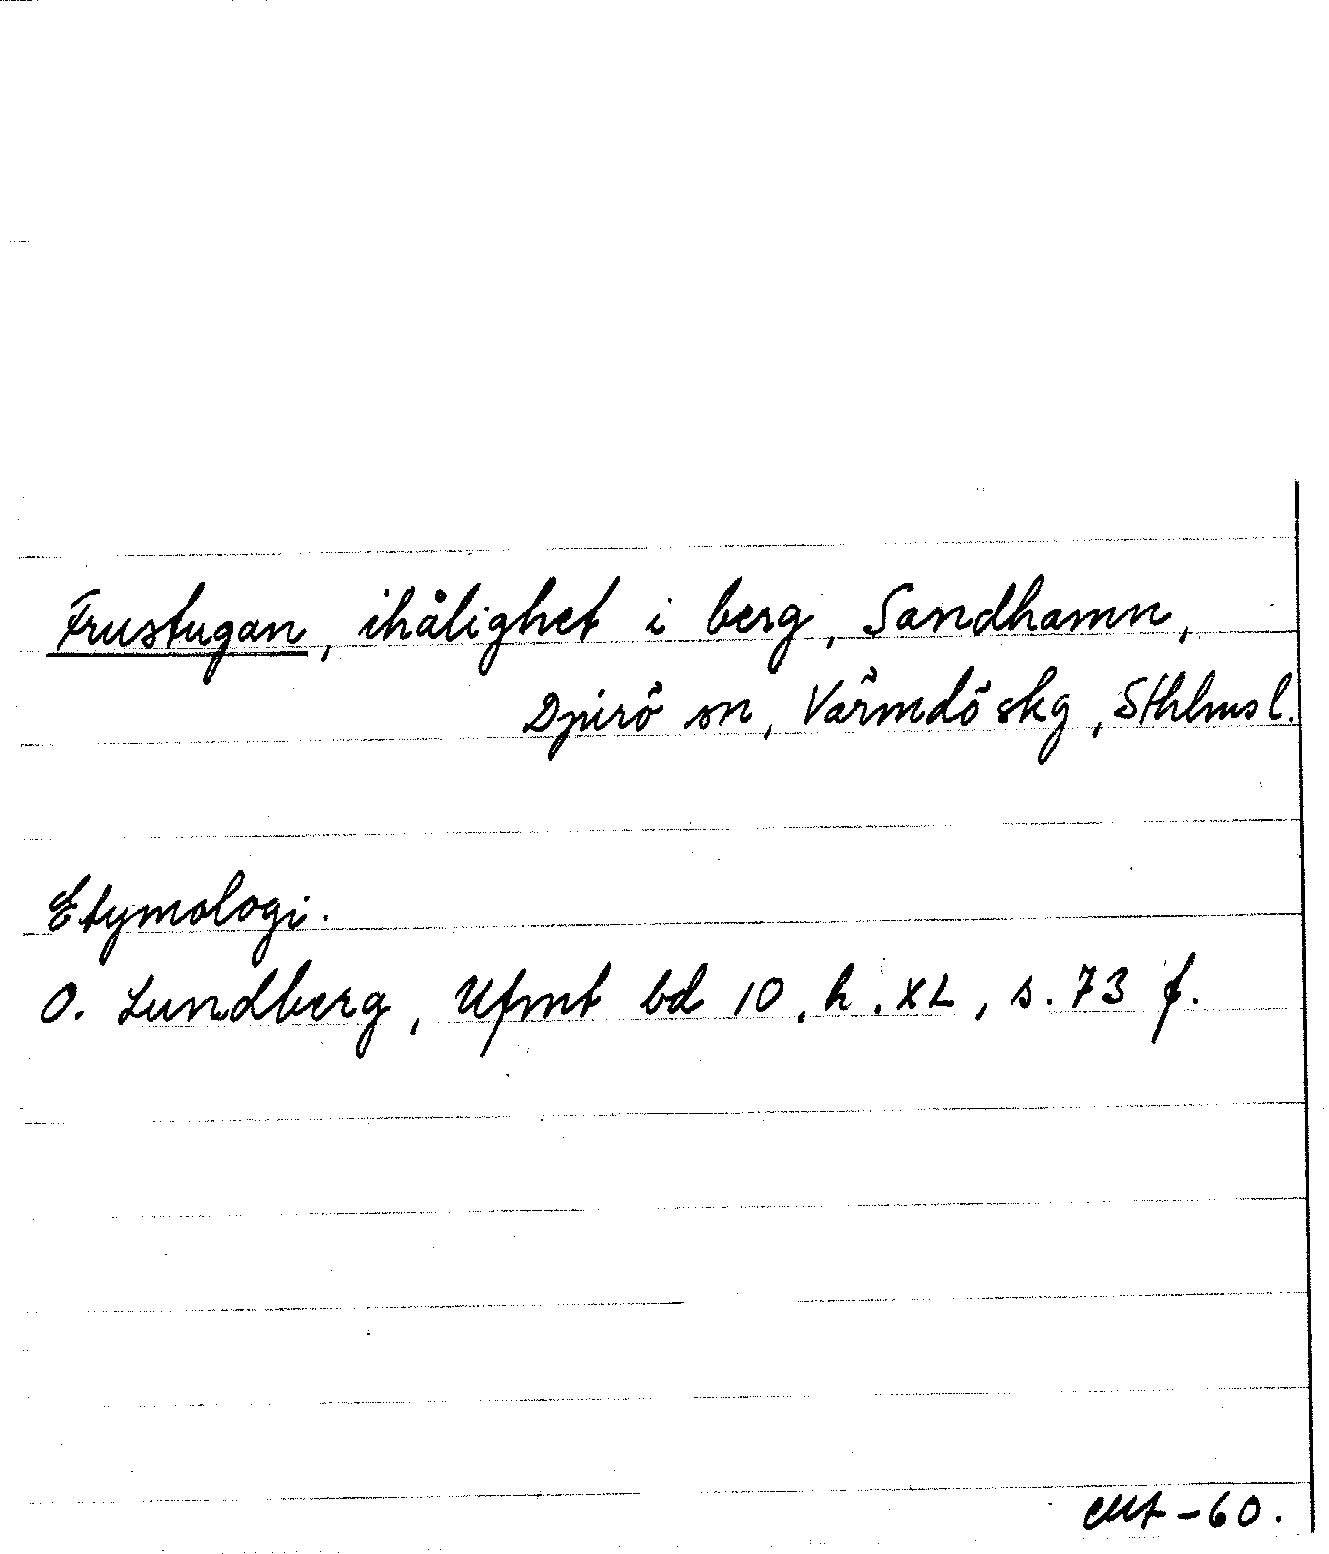 Frustugan, ihålighet i berg, Sandhamn,
Djurö sn, Värmdö skg, Sthlms l.
Etymologi.
O. Lundberg, Ufmt bd 10, h. XL, s. 73 f.
-60.